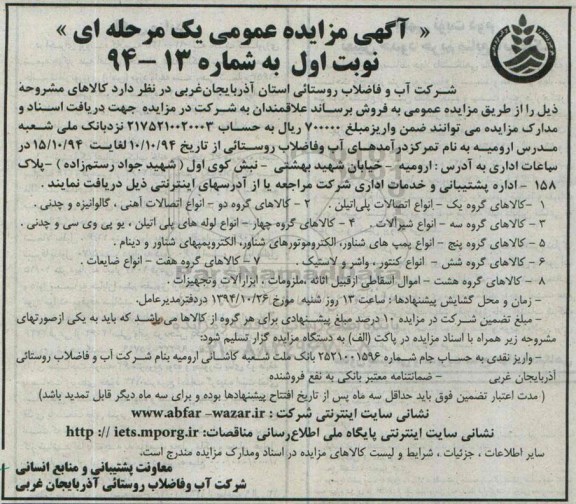 « آگهی مزایده عمومی یک مرحله ای »
نوبت اول به شماره ۱۳ – ۹۴
شرکت آب و فاضلاب روستائی استان آذربایجان‌غربی در نظر دارد کالاهای مشروحه
ذیل را از طریق مزایده عمومی به فروش برساند علاقمندان به شرکت در مزایده جهت دریافت اسناد و
مدارک مزایده می توانند ضمن واریزمبلغ ۷۰۰۰۰۰ ریال به حساب ۲۱۷۵۲۱۰۰۲۰۰۰۳ نزدبانک ملی شعبه
مدرس ارومیه به نام تمرکزدرآمدهای آب وفاضلاب روستائی از تاریخ ۱۰/۱۰/۹۴ لغایت ۱۵/۱۰/۹۴ در
ساعات اداری به آدرس : ارومیه – خیابان شهید بهشتی – نبش کوی اول ( شهید جواد رستم‌زاده ) –پلاک
۱۵۸ – اداره پشتیبانی و خدمات اداری شرکت مراجعه یا از آدرسهای اینترنتی ذیل دریافت نمایند .
۱ –کالاهای گروه یک – انواع اتصالات پلی‌اتیلن . ۲ – کالاهای گروه دو – انواع اتصالات آهنی ، گالوانیزه و چدنی .
۳ – کالاهای گروه سه – انواع شیرآلات . ۴ – کالاهای گروه چهار – انواع لوله های پلی اتیلن ، یو پی وی سی و چدنی .
۵ – کالاهای گروه پنج – انواع پمپ های شناور، الکتروموتورهای شناور، الکتروپمپهای شناور و دینام .
۶ – کالاهای گروه شش – انواع کنتور ، واشر و لاستیک . ۷ – کالاهای گروه هفت – انواع ضایعات .
۸ – کالاهای گروه هشت – اموال اسقاطی ازقبیل اثاثه ،ملزومات ، ابزارآلات وتجهیزات .
– زمان و محل گشایش پیشنهادها : ساعت ۱۳ روز شنبه مورخ ۱۳۹۴/۱۰/۲۶ دردفترمدیرعامل.
– مبلغ تضمین شرکت در مزایده ۱۰ درصد مبلغ پیشنهادی برای هر گروه از کالاها می باشد که باید به یکی ازصورتهای
مشروحه زیر همراه با اسناد مزایده در پاکت (الف) به دستگاه مزایده گزار تسلیم شود:
– واریز نقدی به حساب جام شماره ۲۵۲۱۰۰۱۵۹۶ بانک ملت شعبه کاشانی ارومیه بنام شرکت آب و فاضلاب روستائی
آذربایجان غربی – ضمانتنامه معتبر بانکی به نفع فروشنده
( مدت اعتبار تضمین فوق باید حداقل سه ماه پس از تاریخ افتتاح پیشنهادها بوده و برای سه ماه دیگر قابل تمدید باشد)
نشانی سایت اینترنتی شرکت : www.abfar –wazar.ir
نشانی سایت اینترنتی پایگاه ملی اطلاع‌رسانی مناقصات: http :// iets.mporg.ir
سایر اطلاعات ، جزئیات ، شرایط و لیست کالاهای مزایده در اسناد ومدارک مزایده مندرج است.
معاونت پشتیبانی و منابع انسانی
شرکت آب وفاضلاب روستائی آذربایجان غربی